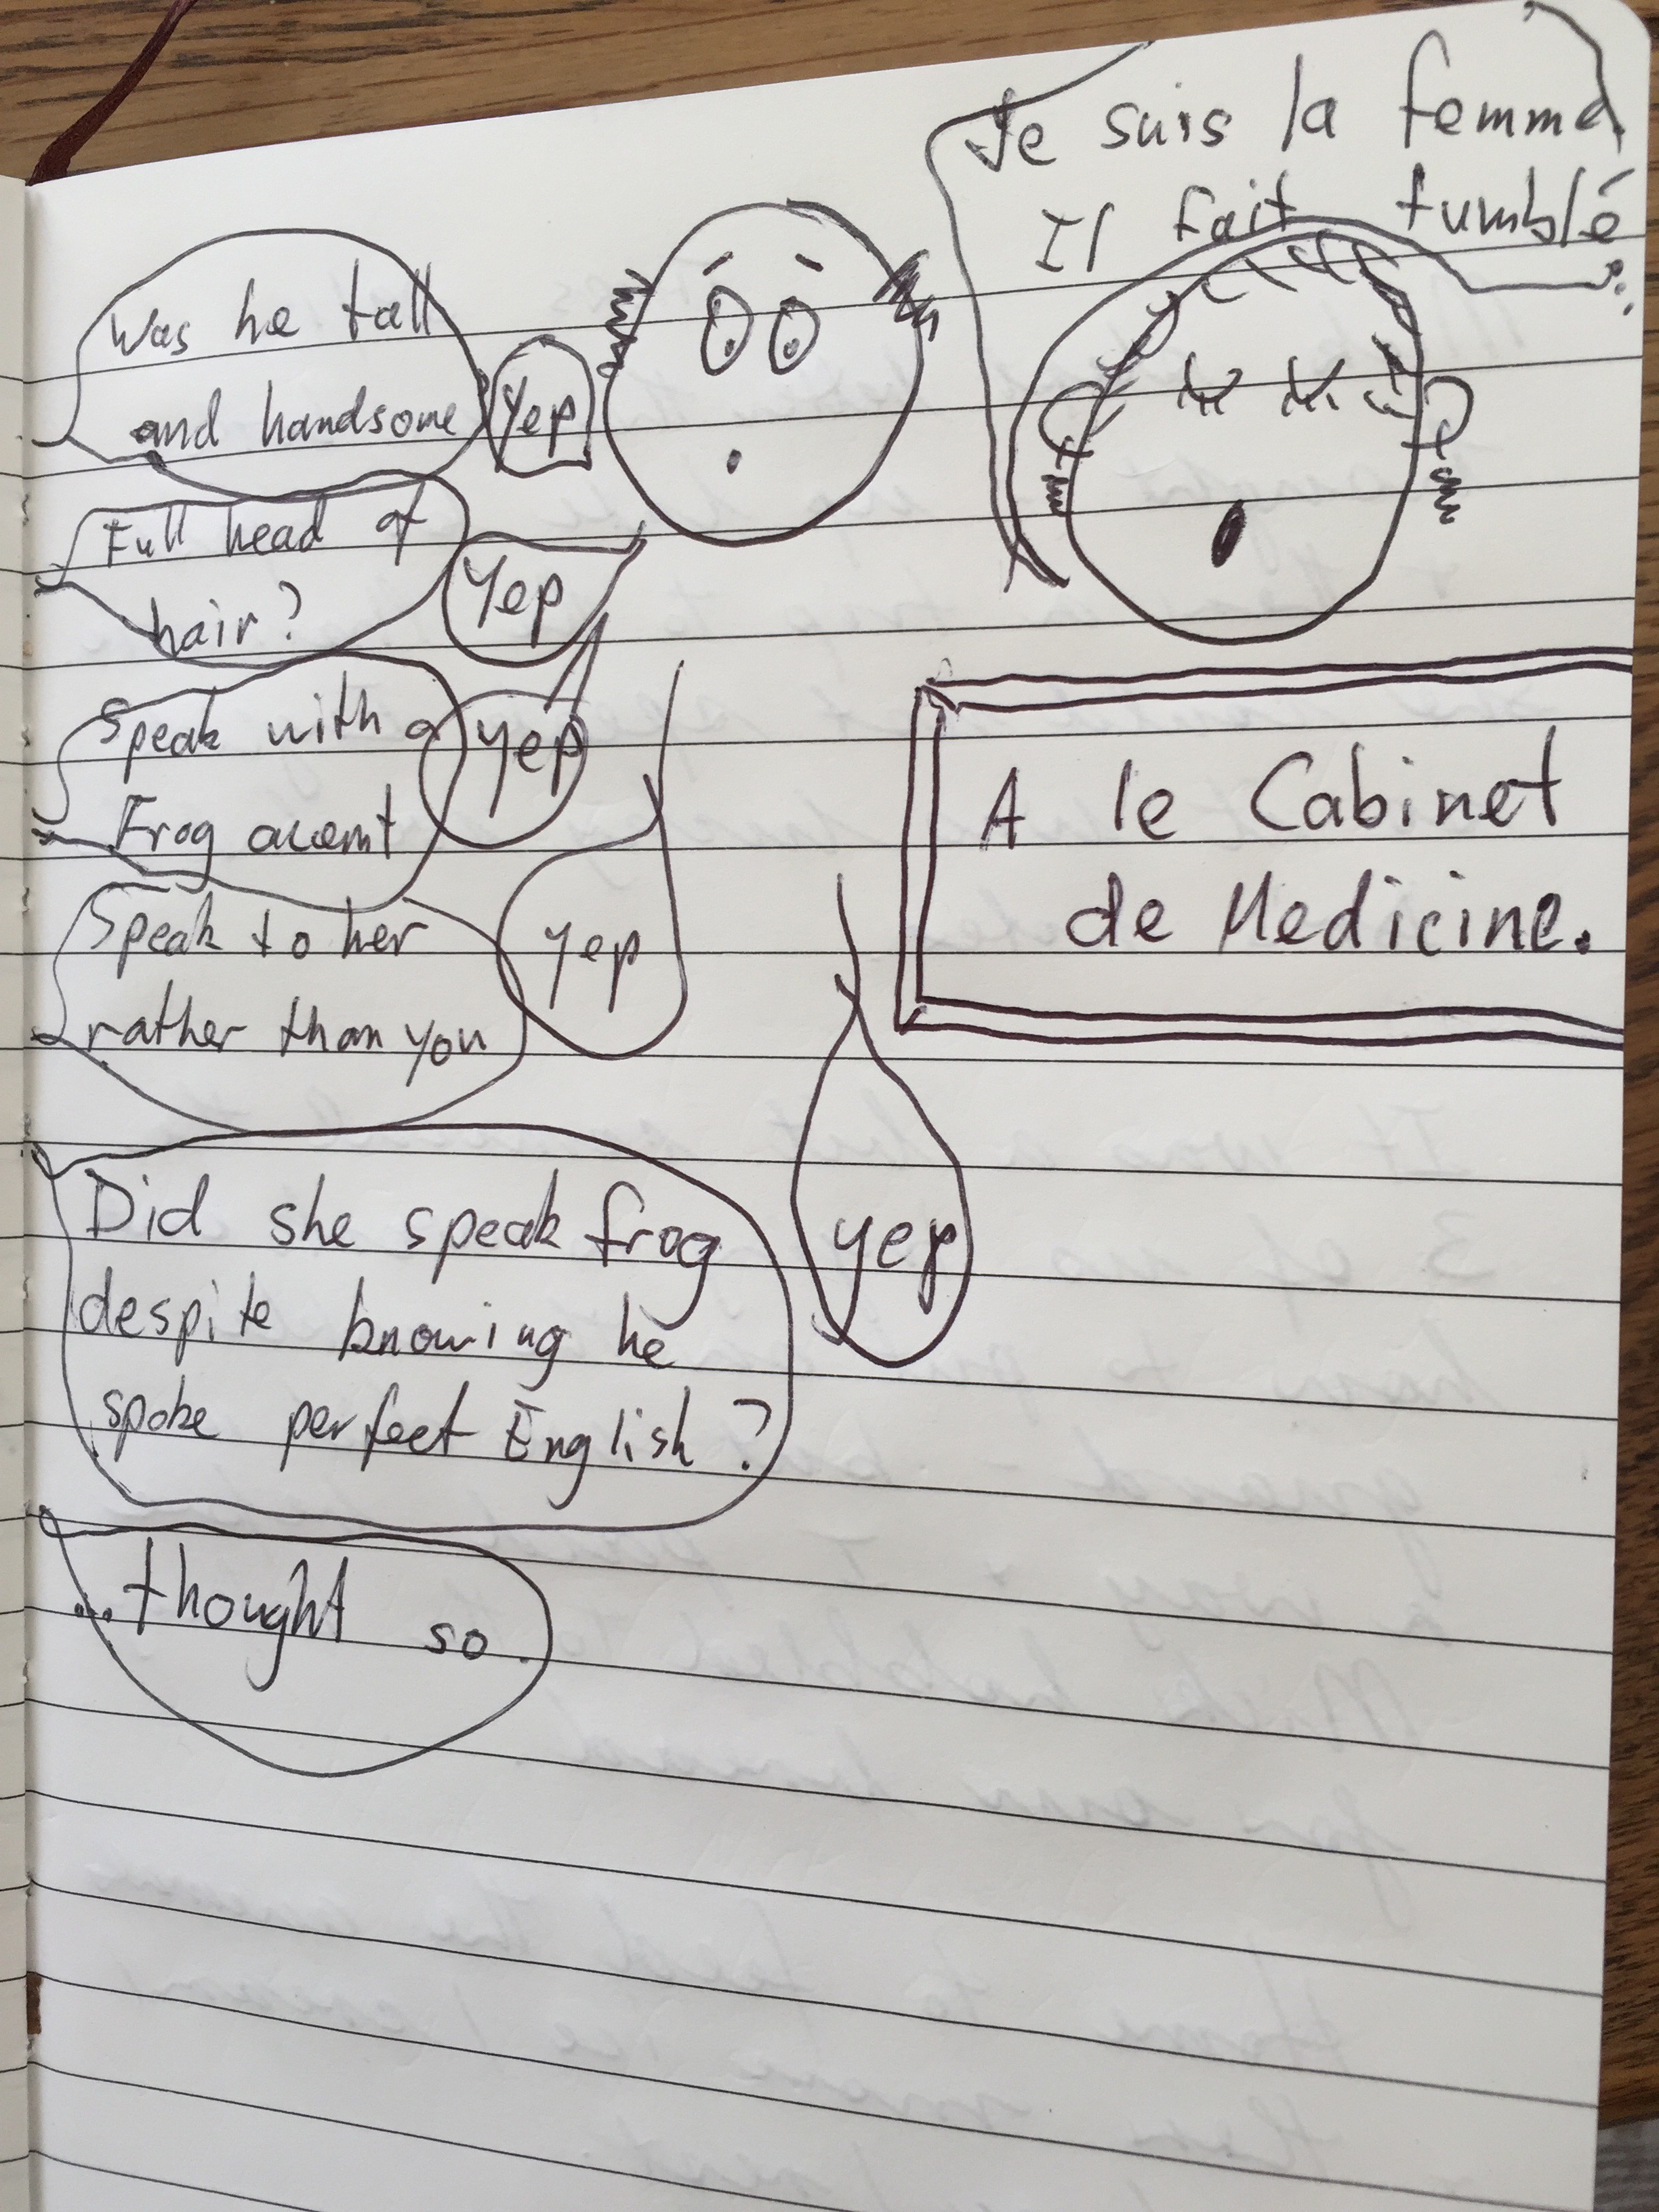 Je suis la femme
Il fait tumblé
Was he tall
and handsome
Yep
Full head of
hair?
Yep
Speak with a
Frog accent
yep
Speak to her
rather than you
yep
A le Cabinet
de Medicine.
Did she speak frog
despite knowing he
spoke perfect English?
yep
...thought so.